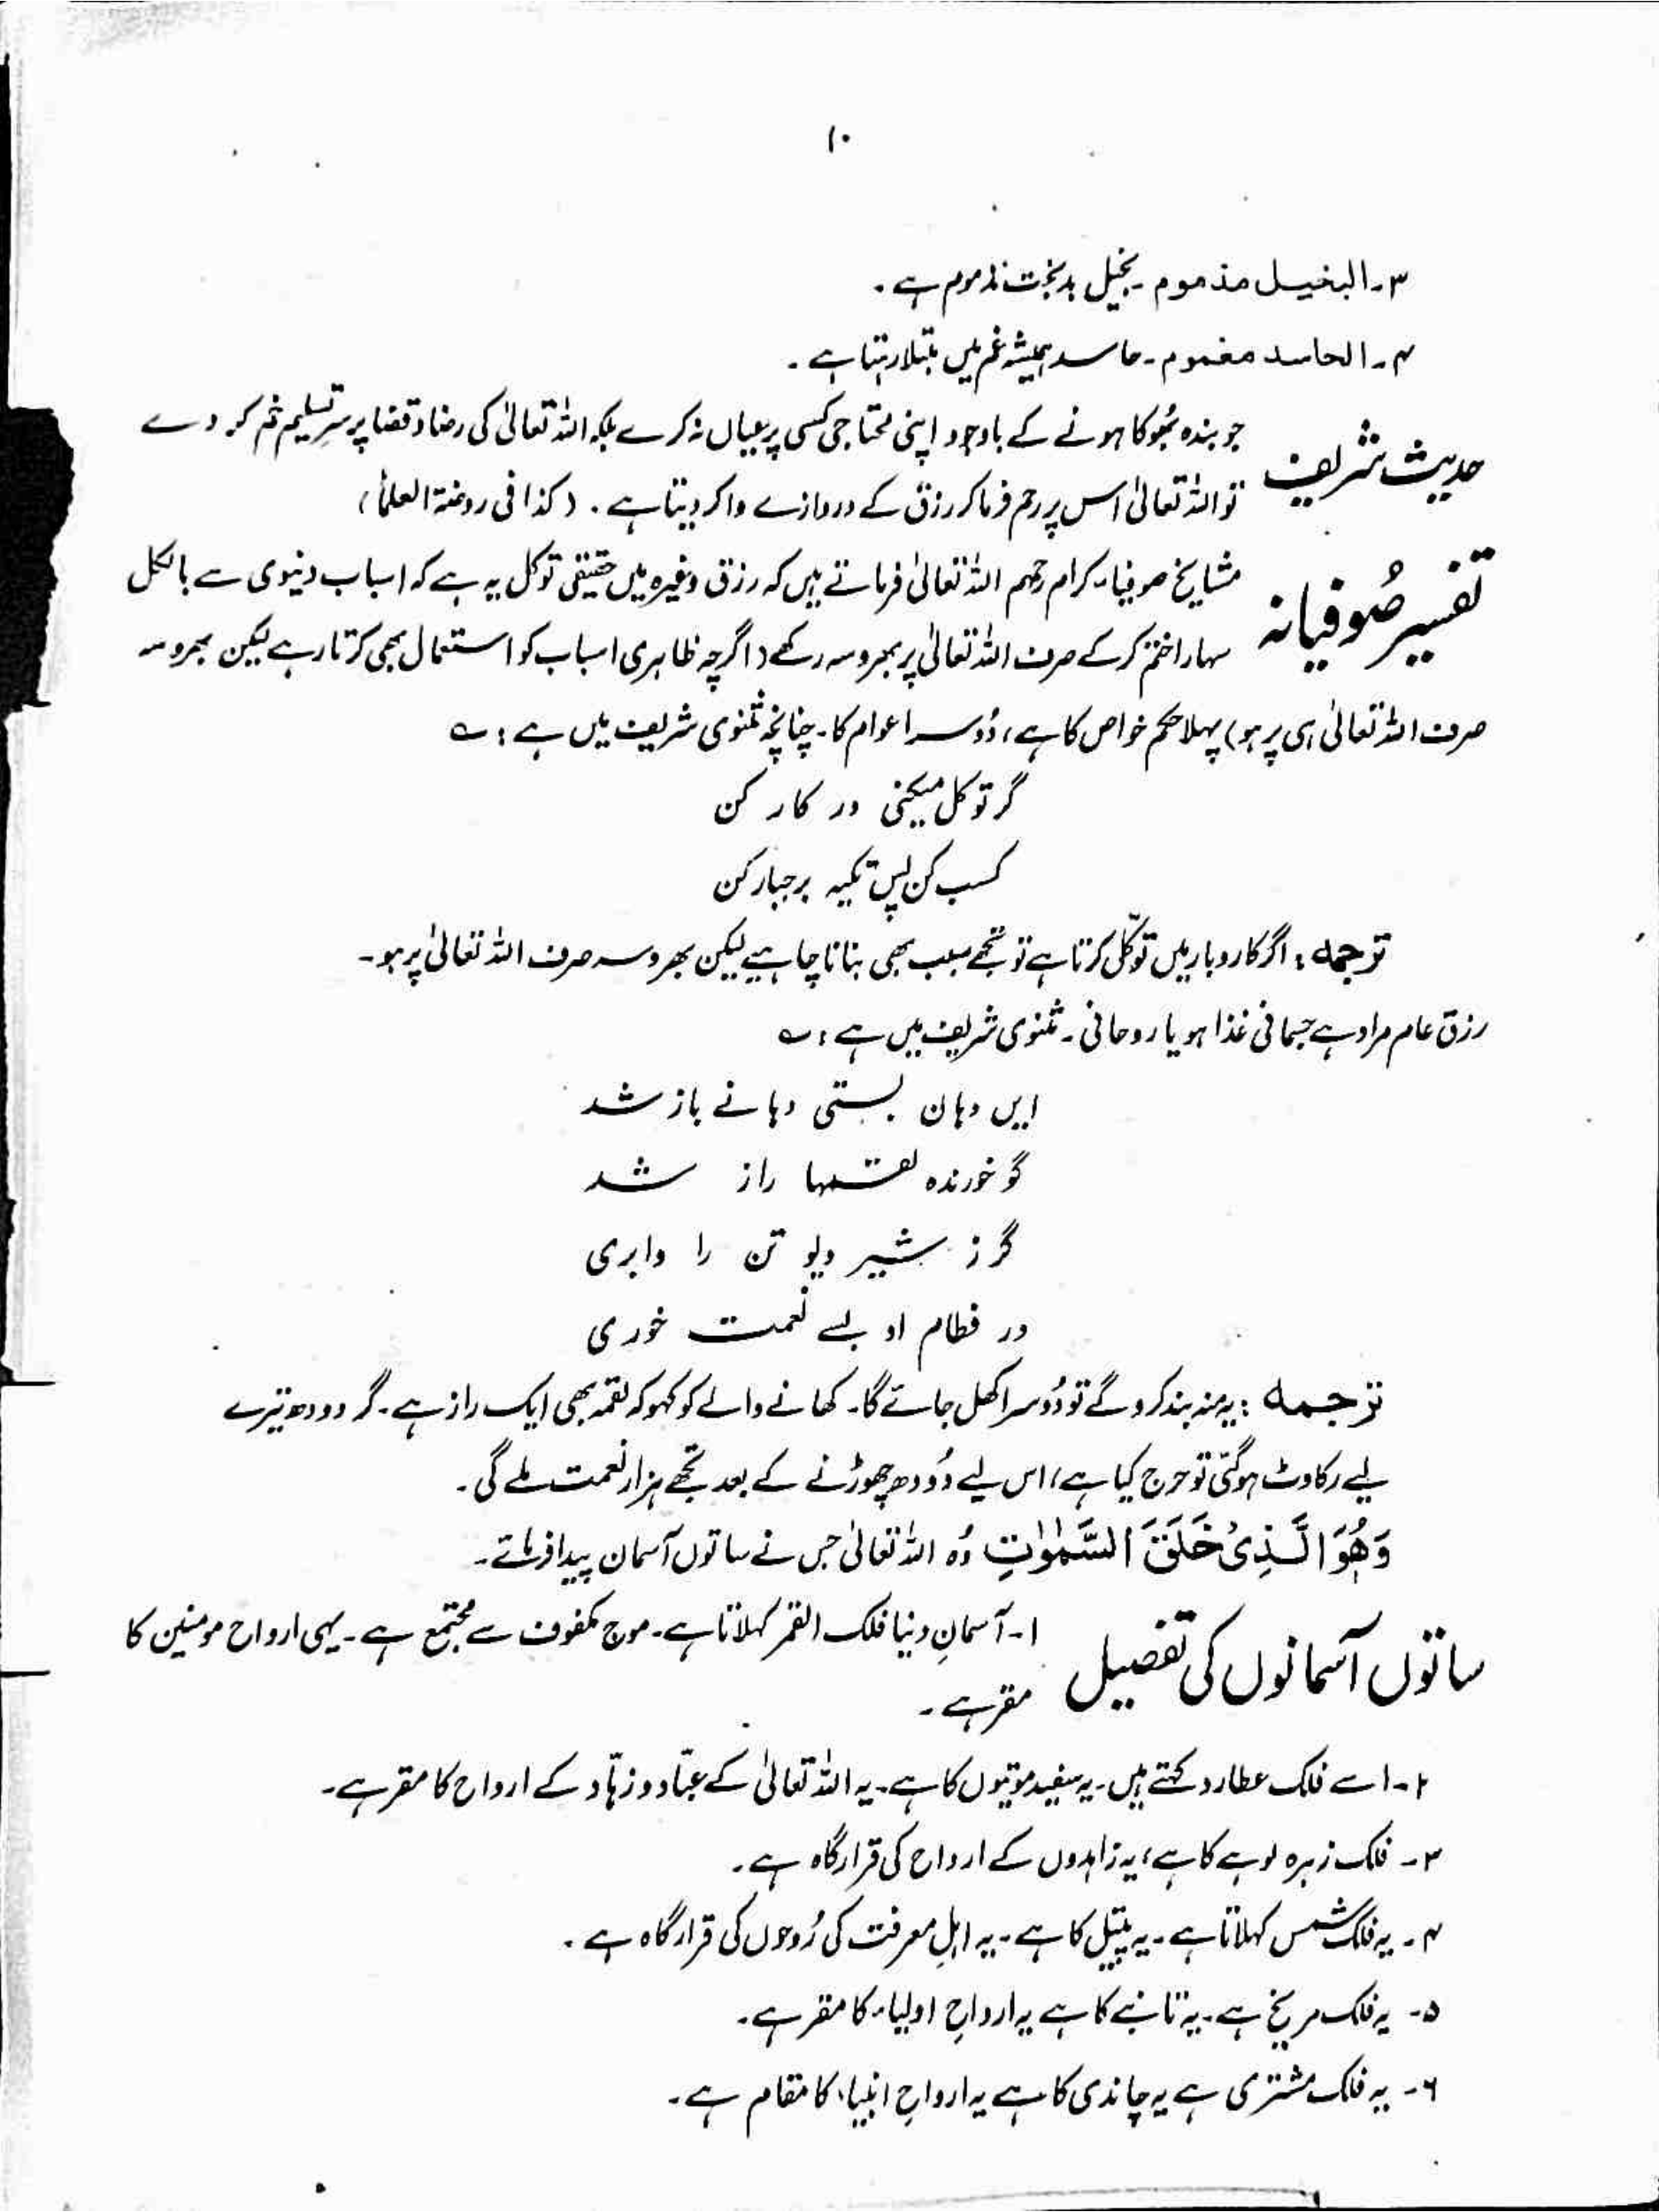 ۱۰
۳۔ البخیل مذموم ۔ بخیل بدبخت مذموم ہے ۔
۴۔ الحاسد مغموم ۔ حاسد ہمیشہ غم میں مبتلا رہتا ہے ۔
حدیث شریف
جو بندہ بُھوکا ہونے کے باوجود اپنی محتاجی کسی پر بیان نہ کرے بلکہ اللہ تعالیٰ کی رضا و قضا پر سرِ تسلیم خم کر دے
تو اللہ تعالیٰ اس پر رحم فرما کر رزق کے دروازے وا کر دیتا ہے ۔ (کذا فی روضۃ العلمأ)
تفسیر صُوفیانہ
مشایخ صوفیاء کرام رحمہم اللہ تعالیٰ فرماتے ہیں کہ رزق وغیرہ میں حقیقی توکل یہ ہے کہ اسباب دنیوی سے بالکل
سہارا ختم کرکے صرف اللہ تعالیٰ پر بھروسہ رکھے (اگرچہ ظاہری اسباب کو استعمال بھی کرتا رہے لیکن بھروسہ
صرف اللہ تعالیٰ ہی پر ہو) پہلا حکم خواص کا ہے، دُوسرا عوام کا ۔ چنانچہ مثنوی شریف میں ہے : ؎
گر توکل میکنی در کار کن
کسب کن پس تکیہ بر جبار کن
ترجمہ : اگر کاروبار میں توکّل کرتا ہے تو تجھے سبب بھی بنانا چاہیے لیکن بھروسہ صرف اللہ تعالیٰ پر ہو ۔
رزق عام مراد ہے جسمانی غذا ہو یا روحانی ۔ مثنوی شریف میں ہے : ؎
ایں دہان بستی دہانے باز شد
گو خورندہ لقمہا راز شد
گر ز شیر دیو تن را وابری
در فطام او بسے نعمت خوری
ترجمہ : یہ منہ بند کرو گے تو دُوسرا کھل جائے گا ۔ کھانے والے کو کہو کہ لقمہ بھی ایک راز ہے ۔ گر دودھ تیرے
لیے رکاوٹ ہو گئی تو حرج کیا ہے، اس لیے دُودھ چھوڑنے کے بعد تجھے ہزار نعمت ملے گی ۔
وَهُوَ الَّذِیْ خَلَقَ السَّمٰوٰتِ وُہ اللہ تعالیٰ جس نے ساتوں آسمان پیدا فرمائے ۔
ساتوں آسمانوں کی تفصیل
۱۔ آسمانِ دنیا فلک القمر کہلاتا ہے ۔ موج مکفوف سے مجتمع ہے ۔ یہی ارواح مومنین کا
مقر ہے ۔
۲۔ اسے فلک عطارد کہتے ہیں ۔ یہ سفید موتیوں کا ہے ۔ یہ اللہ تعالیٰ کے عبّاد و زہّاد کے ارواح کا مقر ہے ۔
۳۔ فلک زہرہ لوہے کا ہے، یہ زاہدوں کے ارواح کی قرار گاہ ہے ۔
۴۔ یہ فلک شمس کہلاتا ہے ۔ یہ پیتل کا ہے ۔ یہ اہلِ معرفت کی رُوحوں کی قرار گاہ ہے ۔
۵۔ یہ فلک مریخ ہے ۔ یہ تانبے کا ہے یہ ارواحِ اولیاء کا مقر ہے ۔
۶۔ یہ فلک مشتری ہے یہ چاندی کا ہے یہ ارواحِ انبیاء کا مقام ہے ۔